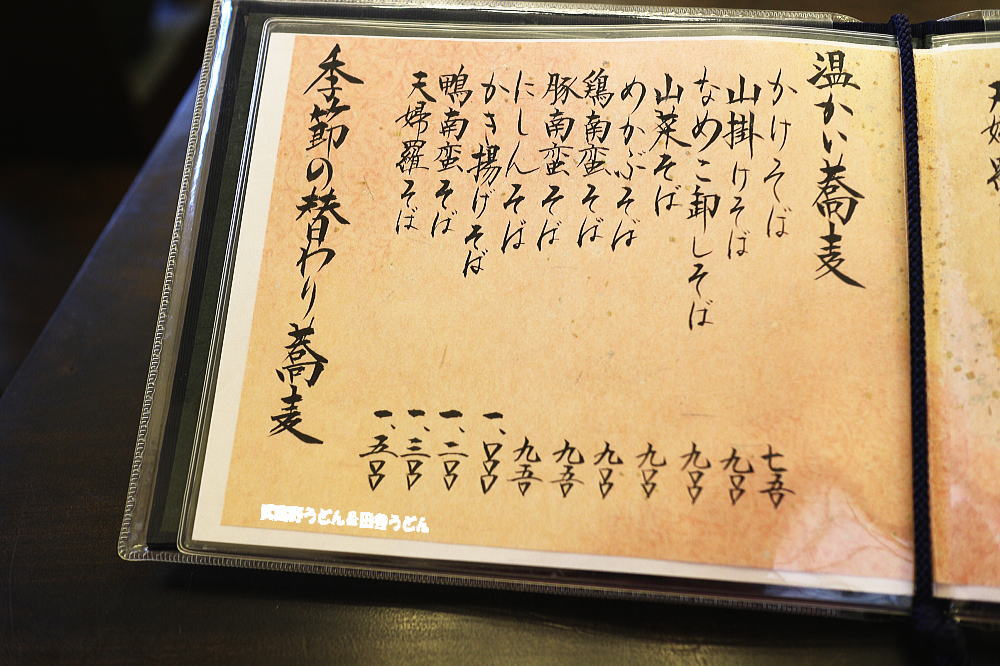 温かい蕎麦
かけそば 七五〇
山掛けそば 九〇〇
なめこ卸しそば 九〇〇
山菜そば 九〇〇
めかぶそば 九〇〇
鶏南蛮そば 九五〇
豚南蛮そば 九五〇
にしんそば 一、〇〇〇
かき揚げそば 一、二〇〇
鴨南蛮そば 一、三〇〇
天婦羅そば 一、五〇〇
季節の替わり蕎麦
武蔵野うどん&田舎うどん